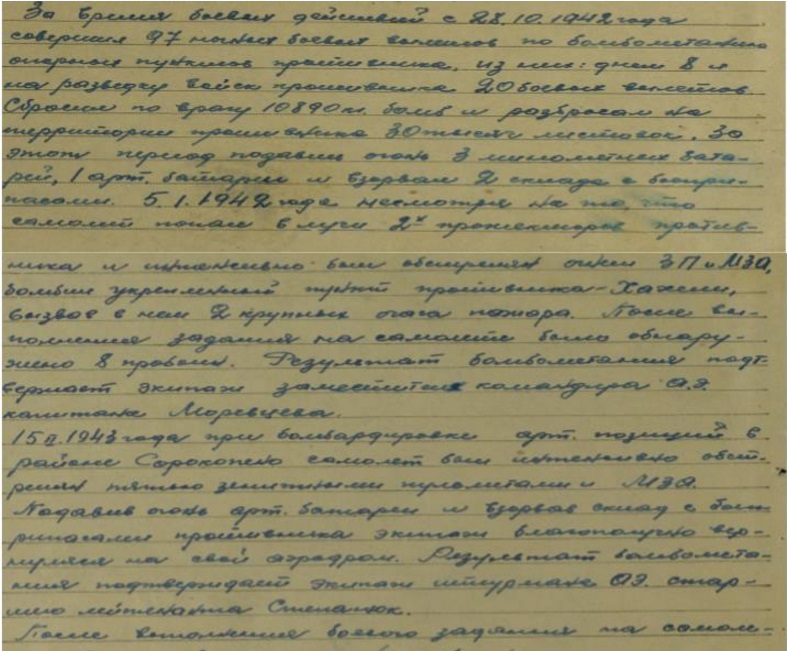 За время боевых действий с 28.10.1942 года
совершил 97 ночных боевых вылетов по бомбометанию
опорных пунктов противника, из них: днем 8 и
на разведку войск противника 20 боевых вылетов.
Сбросил по врагу 10890 кг. бомб и разбросал на
территории противника 30 тысяч листовок. За
этот период подавил огонь 3 минометных бата-
рей, 1 арт. батареи и взорвал 2 склада с боепри-
пасами. 5.1.1942 года несмотря на то, что
самолет попал в лучи 2х прожекторов против-
ника и интенсивно был обстрелян огнем ЗП и МЗА,
бомбил укрепленный пункт противника - Хажени,
вызвав в нем 2 крупных очага пожара. После вы-
полнения задания на самолете было обнару-
жено 8 пробоин. Результат бомбометания подт-
вержает экипаж заместителя командира АЭ.
капитана Моревцева.
15.II.1943 года при бомбардировке арт. позиций в
районе Сорокопено самолет был интенсивно обст-
релян пятью зенитными пулеметами и МЗА.
Подавив огонь арт. батареи и взорвав склад с боеп-
рипасами противника экипаж благополучно вер-
нулся на свой аэродром. Результат бомбомета-
ния подтверждает экипаж штурмана АЭ. стар-
шего лейтенанта Степанюк.
После выполнения боевого задания на самоле-